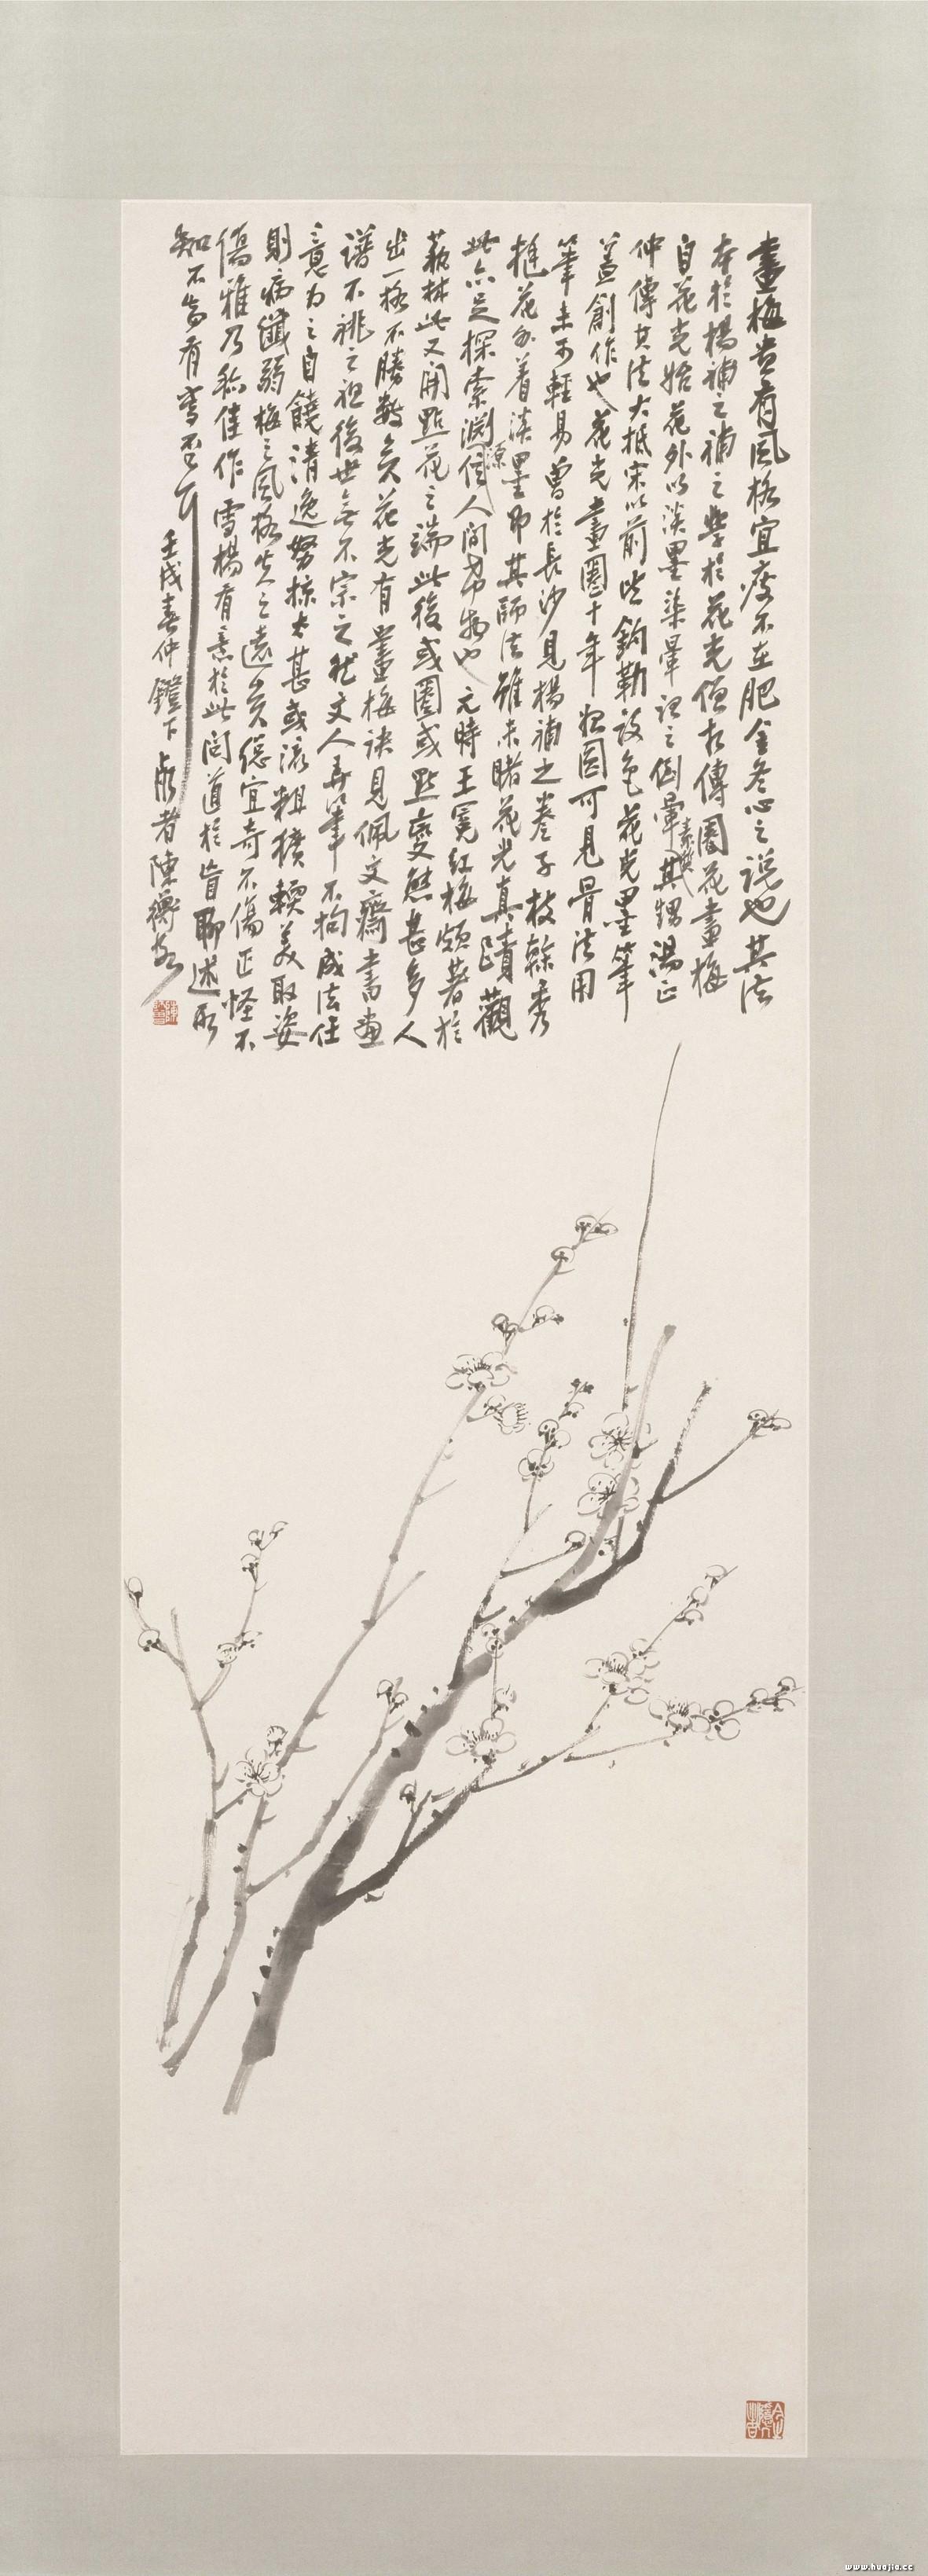 畫梅貴有風格宜瘦不在肥金冬心之説也其法
本於楊補之補之學於花光僧相傳圈花畫梅
自花光始花外以淡墨染暈謂之倒暈其甥湯正
仲傳其法大抵宋以前皆鈎勒設色花光墨筆
蓋創作也花光畫圈十年始圓可見骨法用
筆未可輕易曾於長沙見楊補之卷子枝榦秀
挺花外着淡墨即其師法雖未睹花光真蹟觀
此亦足探索淵源信人間希物也元時王冕紅梅頗著於
藝林此又開點花之端此後或圈或點變態甚多人
出一格不勝數矣花光有畫梅訣見佩文齋書畫
譜不祧之祖後世無不宗之然文人弄筆不拘成法任
意為之自饒清逸努掠太甚或流粗獷輭美取姿
則病纖弱梅之風格失之遠矣總宜奇不傷正怪不
傷雅乃稱佳作雪楊有意於此問道於盲聊述所
知不知有當否
壬戌春仲鐙下 朽者陳衡恪
www.huajia.cc